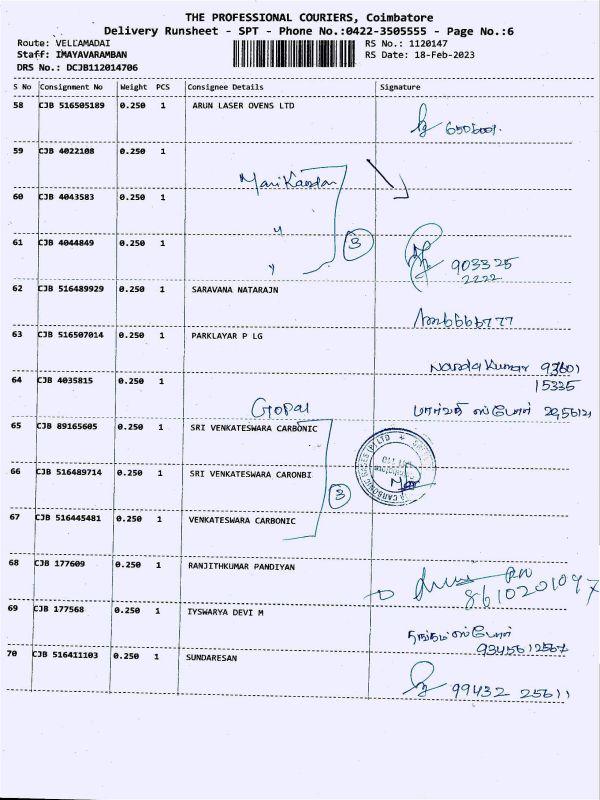 THE PROFESSIONAL COURIERS, Coimbatore
Delivery Runsheet - SPT - Phone No.:0422-3505555 - Page No.:6
Route: VELLAMADAI
RS No.: 1120147
Staff: IMAYAVARAMBAN
RS Date: 18-Feb-2023
DRS No.: DCJB112014706
S No Consignment No Weight PCS Consignee Details Signature
58 CJB 516505189 0.250 1 ARUN LASER OVENS LTD
59 CJB 4022108 0.250 1
Manikandan
60 CJB 4043583 0.250 1
61 CJB 4044849 0.250 1
3
903325
2222
62 CJB 516489929 0.250 1 SARAVANA NATARAJN
63 CJB 516507014 0.250 1 PARKLAYAR P LG
Nandakumar 93601
15335
64 CJB 4035815 0.250 1
Gopal
65 CJB 89165605 0.250 1 SRI VENKATESWARA CARBONIC
66 CJB 516489714 0.250 1 SRI VENKATESWARA CARONBI
3
67 CJB 516445481 0.250 1 VENKATESWARA CARBONIC
68 CJB 177609 0.250 1 RANJITHKUMAR PANDIYAN
8610201097
69 CJB 177568 0.250 1 IYSWARYA DEVI M
9345612567
70 CJB 516411103 0.250 1 SUNDARESAN
99432 25611